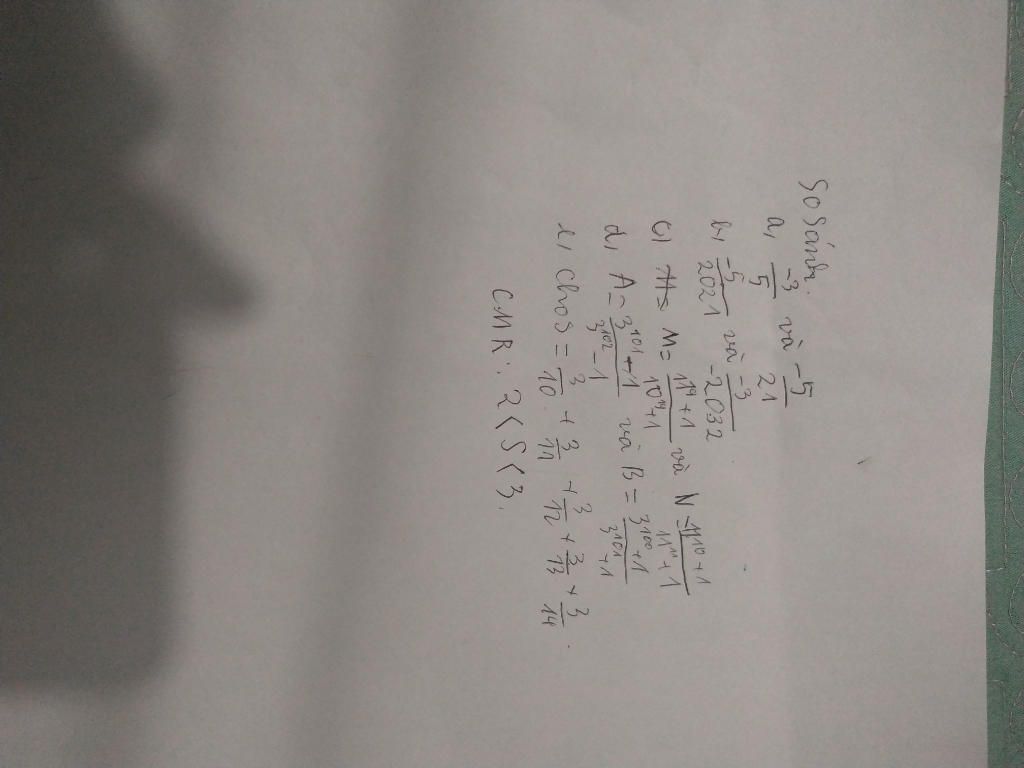 So Sánh.
a, -3/5 và -5/21
b, -5/2021 và -3/-2032
c) M = / 10¹¹+1 và N = 11¹⁰+1/11¹¹+1
d, A = 3¹⁰¹+1/3¹⁰²-1 và B = 3¹⁰⁰+1/3¹⁰¹+1
e, Cho S = 3/10 + 3/11 + 3/12 + 3/13 + 3/14.
CMR: 2<S<3.